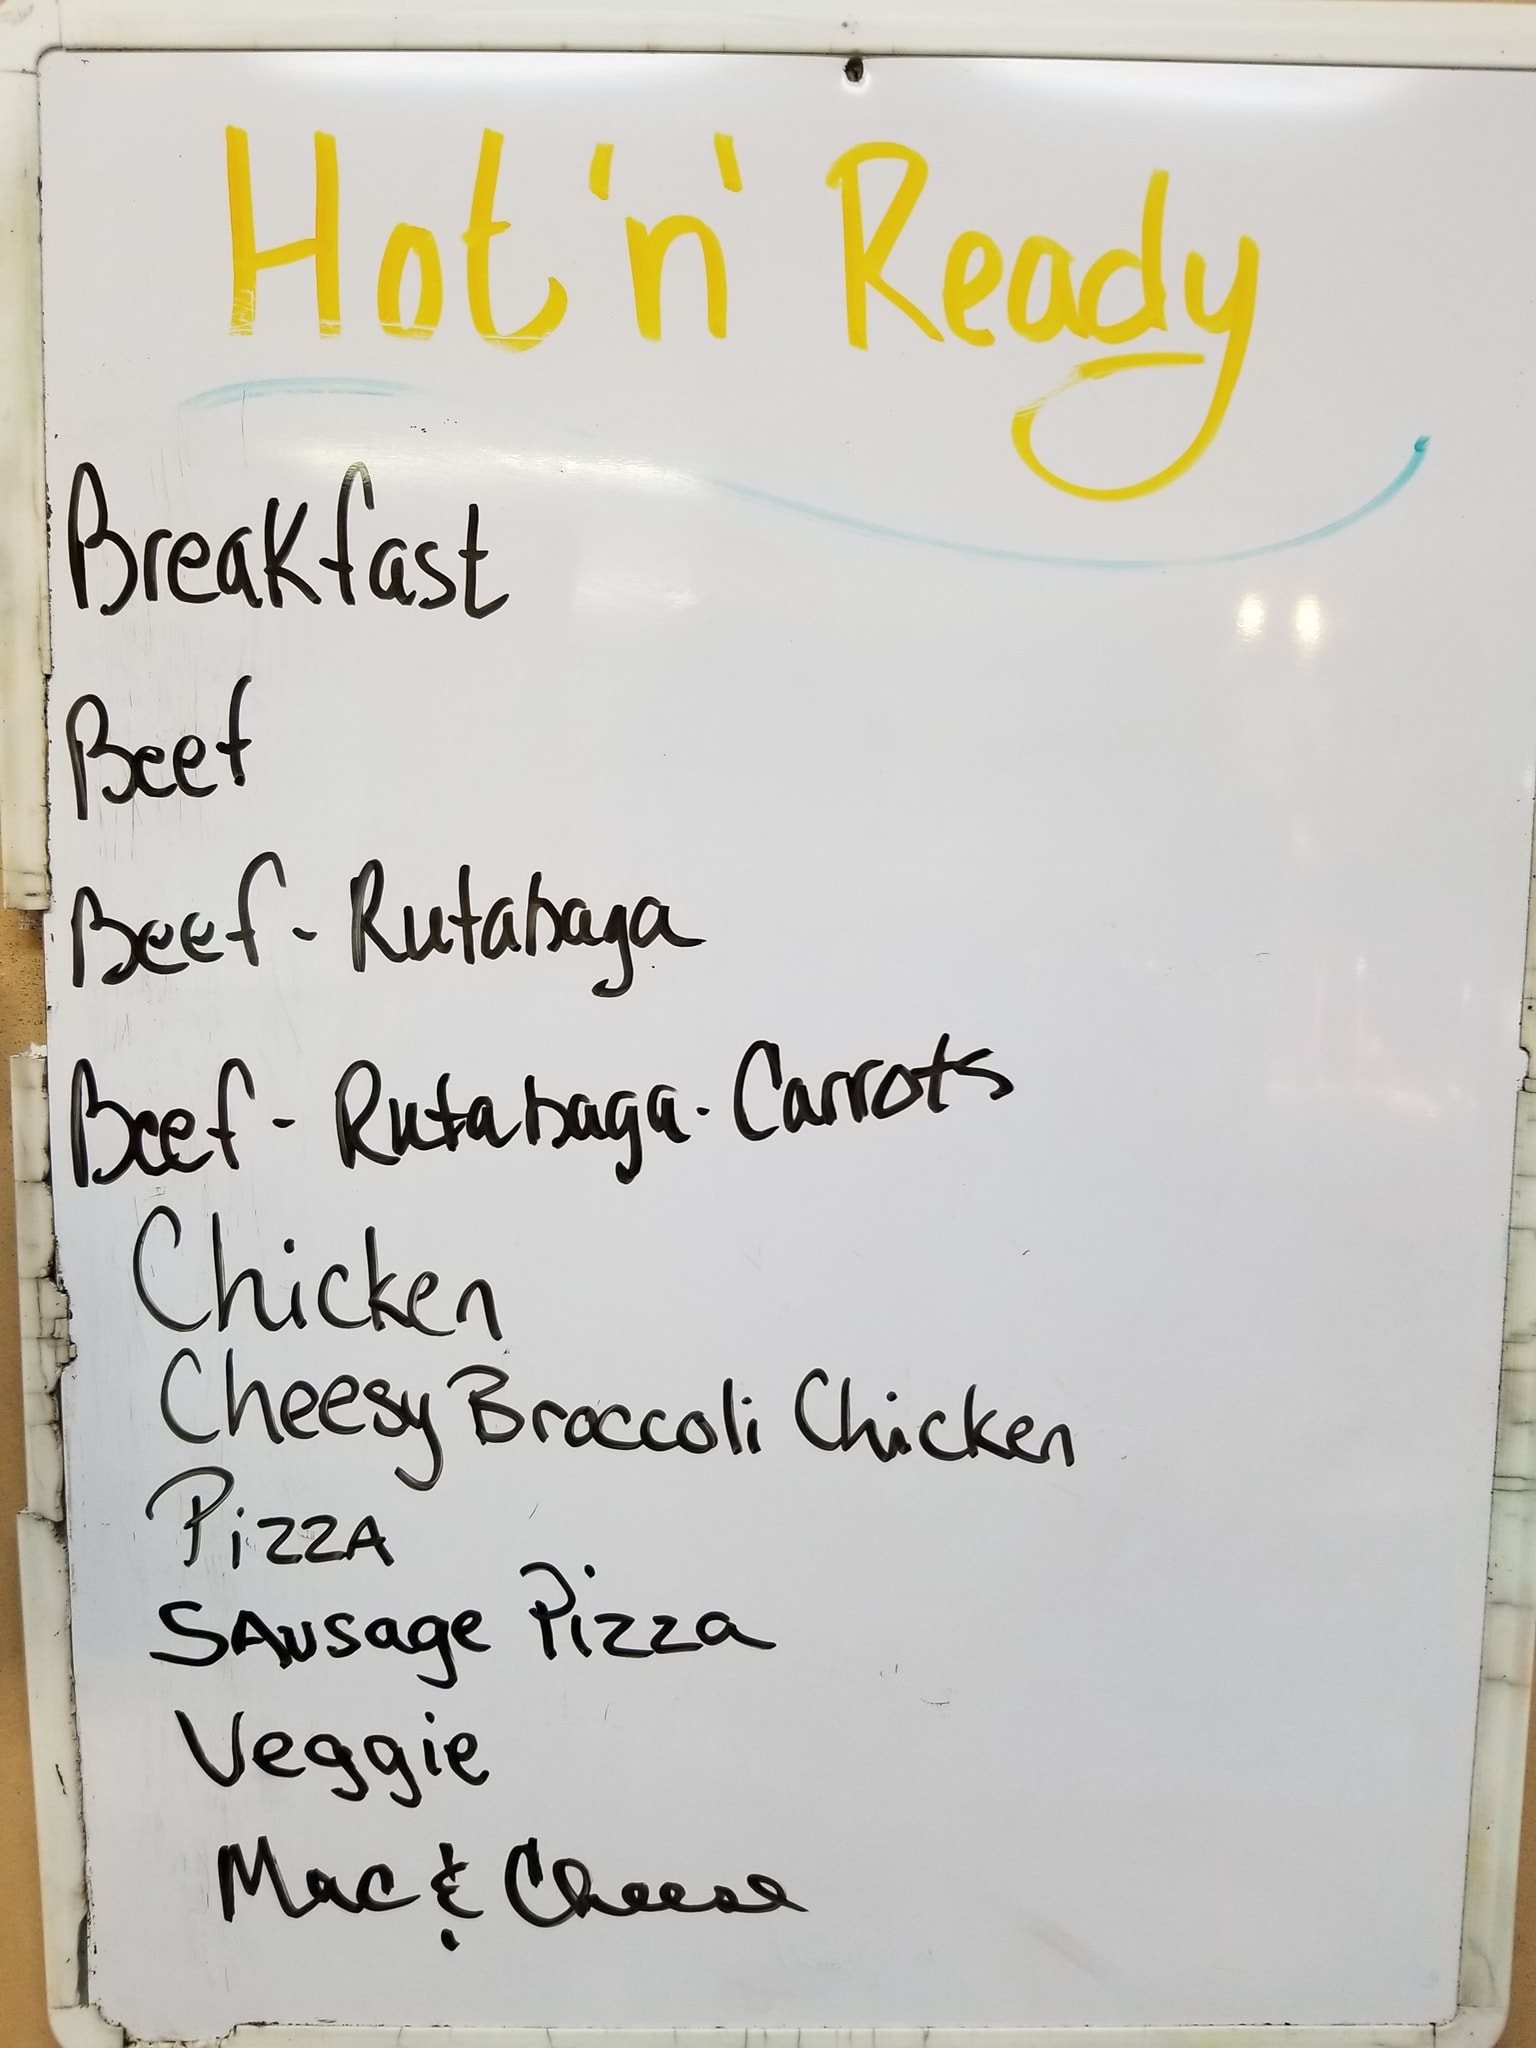 Hot 'n' Ready
Breakfast
Beef
Beef - Rutabaga
Beef - Rutabaga - Carrots
Chicken
Cheesy Broccoli Chicken
PizzA
SAusage Pizza
Veggie
Mac & Cheese